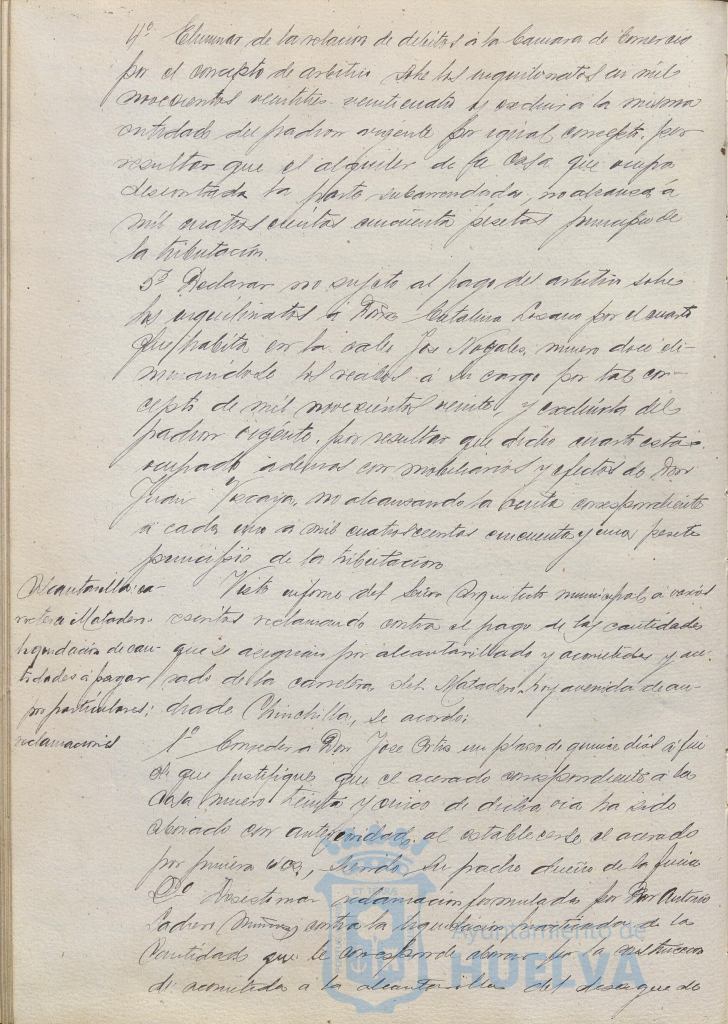 4º Eliminar de la relación de débitos á la Camara de Comercio
por el concepto de arbitrio sobre los inquilinatos en mil
novecientos veintitres veinticuatro y excluir á la misma
entidad del padron vigente por igual concepto, por
resultar que el alquiler de la casa que ocupa
descontada la parte subarrendada, no alcanza á
mil cuatrocientas cincuenta pesetas principio de
la tributación.
5º Declarar no sujeto al pago del arbitrio sobre
los inquilinatos á Doña Catalina Lozano por el cuarto
que habita en la calle José Nogales, número doce eli-
minandose los recibos á su cargo por tal con-
cepto de mil novecientos veinte, y excluirla del
padron vigente, por resultar que dicho cuarto está
ocupado además con mobiliarios y efectos de Don
Juan Vizcaya, no alcanzando la renta correspondiente
á cada uno á mil cuatrocientas cincuenta y una pesetas
principio de la tributación
Alcantarilla ca-
rretera Matadero.
liquidación de can-
tidades á pagar
por particulares;
reclamaciones
Visto informe del Señor Arquitecto municipal á varios
escritos reclamando contra el pago de las cantidades
que se asignan por alcantarillado y acometidas y ace-
rado de la carretera del Matadero, hoy avenida de An-
drade Chinchilla, se acordó:
1º Conceder á Don José Ortiz un plazo de quince dias á fin
de que justifique que el acerado correspondiente á la
casa número treinta y cinco de dicha via ha sido
abonado con anterioridad al establecerse el acerado
por primera vez, siendo su padre dueño de la finca
2º Desestimar reclamación formulada por Don Antonio
Ladrero Muñoz contra la liquidación practicada de la
cantidad que le corresponde abonar por la construcción
de acometida á la alcantarilla del desagüe de
Ayuntamiento de
HUELVA